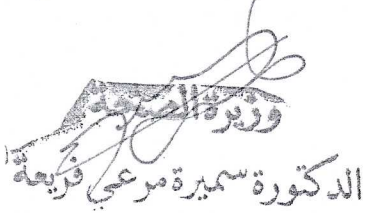 وزيرة الصحة
الدكتورة سميرة مرعي فريعة